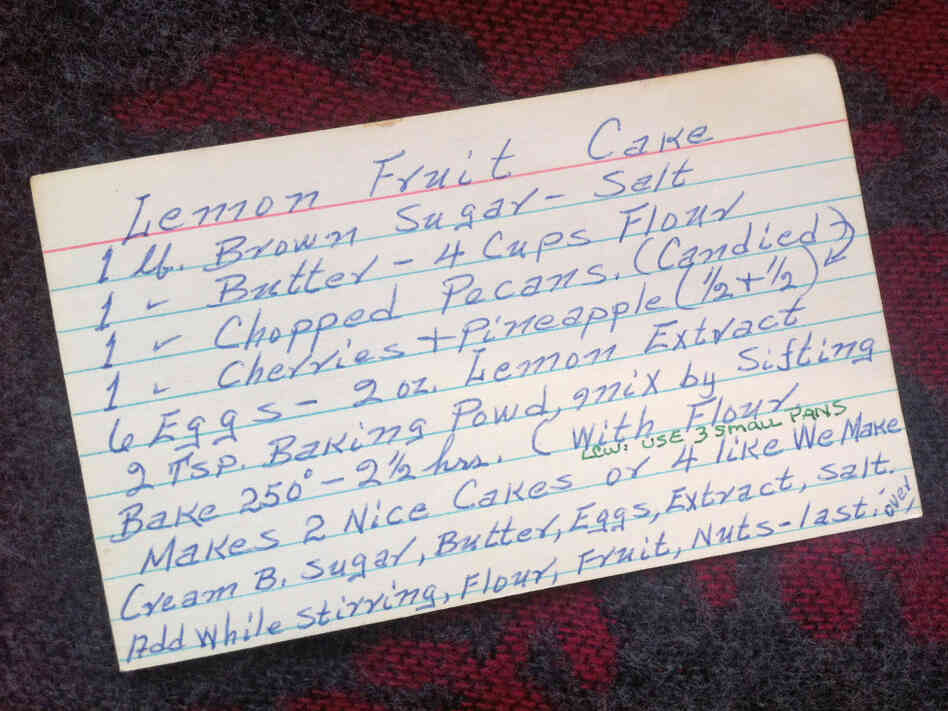 Lemon Fruit Cake
1 lb. Brown Sugar - Salt
1 " Butter - 4 Cups Flour
1 " Chopped Pecans. (Candied)
1 " Cherries + Pineapple (1/2 + 1/2)
6 Eggs - 2 oz. Lemon Extract
2 Tsp. Baking Powd, mix by Sifting
Bake 250° - 2½ hrs. (With Flour
USE 3 SMALL PANS
Makes 2 Nice Cakes or 4 like We Make
Cream B. Sugar, Butter, Eggs, Extract, Salt.
Add While Stirring, Flour, Fruit, Nuts - last. over